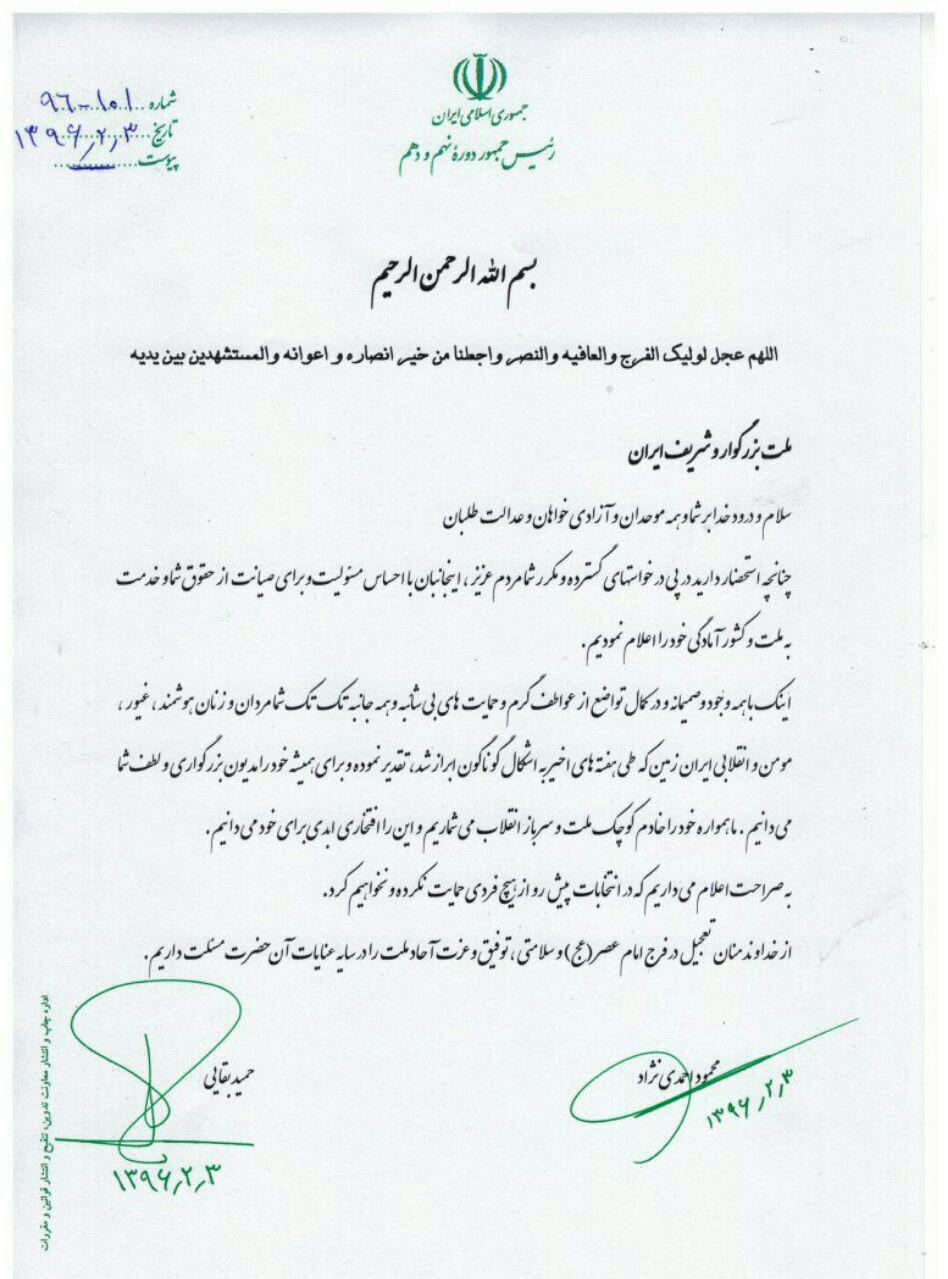 جمهوری اسلامی ایران
رئیس جمهور دورهٔ نهم و دهم
شماره ۱۰۱-۹۶
تاریخ ۱۳۹۶/۲/۳
پیوست
بسم الله الرحمن الرحیم
اللهم عجل لولیک الفرج والعافیه والنصر واجعلنا من خیر انصاره و اعوانه والمستشهدین بین یدیه
ملت بزرگوار و شریف ایران
سلام و درود خدا بر شما و همه موحدان و آزادی خواهان و عدالت طلبان
چنانچه استحضار دارید در پی درخواستهای گسترده و مکرر شما مردم عزیز، اینجانبان با احساس مسئولیت و برای صیانت از حقوق شما و خدمت
به ملت و کشور آمادگی خود را اعلام نمودیم.
اینک با همه وجود و صمیمانه و در کمال تواضع از عواطف گرم و حمایت های بی شائبه و همه جانبه تک تک شما مردان و زنان هوشمند، غیور،
مومن و انقلابی ایران زمین که طی هفته های اخیر به اشکال گوناگون ابراز شد، تقدیر نموده و برای همیشه خود را مدیون بزرگواری و لطف شما
می دانیم. ما همواره خود را خادم کوچک ملت و سرباز انقلاب می شماریم و این را افتخاری ابدی برای خود می دانیم.
به صراحت اعلام می داریم که در انتخابات پیش رو از هیچ فردی حمایت نکرده و نخواهیم کرد.
از خداوند منان تعجیل در فرج امام عصر(عج) و سلامتی، توفیق و عزت آحاد ملت را در سایه عنایات آن حضرت مسئلت داریم.
محمود احمدی نژاد
۱۳۹۶/۲/۳
حمید بقایی
۱۳۹۶/۲/۳
اداره چاپ و انتشار معاونت تدوین، تنقیح و انتشار قوانین و مقررات